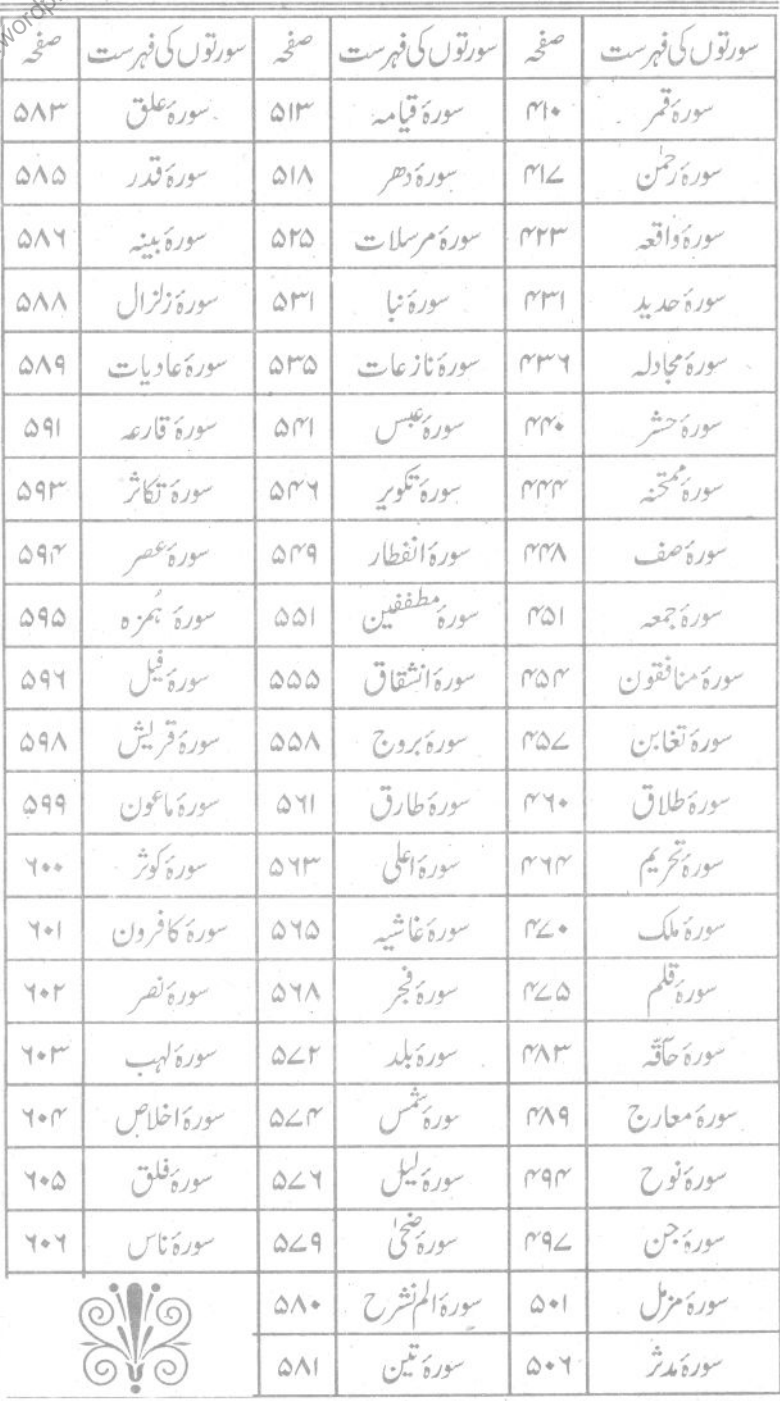 wordp
سورتوں کی فہرست صفحہ سورتوں کی فہرست صفحہ سورتوں کی فہرست صفحہ
سورۂ قمر ۴۱۰ سورۂ قیامہ ۵۱۳ سورۂ علق ۵۸۳
سورۂ رحمٰن ۴۱۷ سورۂ دھر ۵۱۸ سورۂ قدر ۵۸۵
سورۂ واقعہ ۴۲۳ سورۂ مرسلات ۵۲۵ سورۂ بینہ ۵۸۶
سورۂ حدید ۴۳۱ سورۂ نبا ۵۳۱ سورۂ زلزال ۵۸۸
سورۂ مجادلہ ۴۳۶ سورۂ نازعات ۵۳۵ سورۂ عادیات ۵۸۹
سورۂ حشر ۴۴۰ سورۂ عبس ۵۴۱ سورۂ قارعہ ۵۹۱
سورۂ ممتحنہ ۴۴۴ سورۂ تکویر ۵۴۶ سورۂ تکاثر ۵۹۳
سورۂ صف ۴۴۸ سورۂ انفطار ۵۴۹ سورۂ عصر ۵۹۴
سورۂ جمعہ ۴۵۱ سورۂ مطففین ۵۵۱ سورۂ ہُمزہ ۵۹۵
سورۂ منافقون ۴۵۴ سورۂ انشقاق ۵۵۵ سورۂ فیل ۵۹۶
سورۂ تغابن ۴۵۷ سورۂ بروج ۵۵۸ سورۂ قریش ۵۹۸
سورۂ طلاق ۴۶۰ سورۂ طارق ۵۶۱ سورۂ ماعون ۵۹۹
سورۂ تحریم ۴۶۴ سورۂ اعلی ۵۶۳ سورۂ کوثر ۶۰۰
سورۂ ملک ۴۷۰ سورۂ غاشیہ ۵۶۵ سورۂ کافرون ۶۰۱
سورۂ قلم ۴۷۵ سورۂ فجر ۵۶۸ سورۂ نصر ۶۰۲
سورۂ حآقّہ ۴۸۳ سورۂ بلد ۵۷۲ سورۂ لہب ۶۰۳
سورۂ معارج ۴۸۹ سورۂ شمس ۵۷۴ سورۂ اخلاص ۶۰۴
سورۂ نوح ۴۹۴ سورۂ لیل ۵۷۶ سورۂ فلق ۶۰۵
سورۂ جن ۴۹۷ سورۂ ضحیٰ ۵۷۹ سورۂ ناس ۶۰۶
سورۂ مزمل ۵۰۱ سورۂ الم نشرح ۵۸۰
سورۂ مدثر ۵۰۶ سورۂ تین ۵۸۱